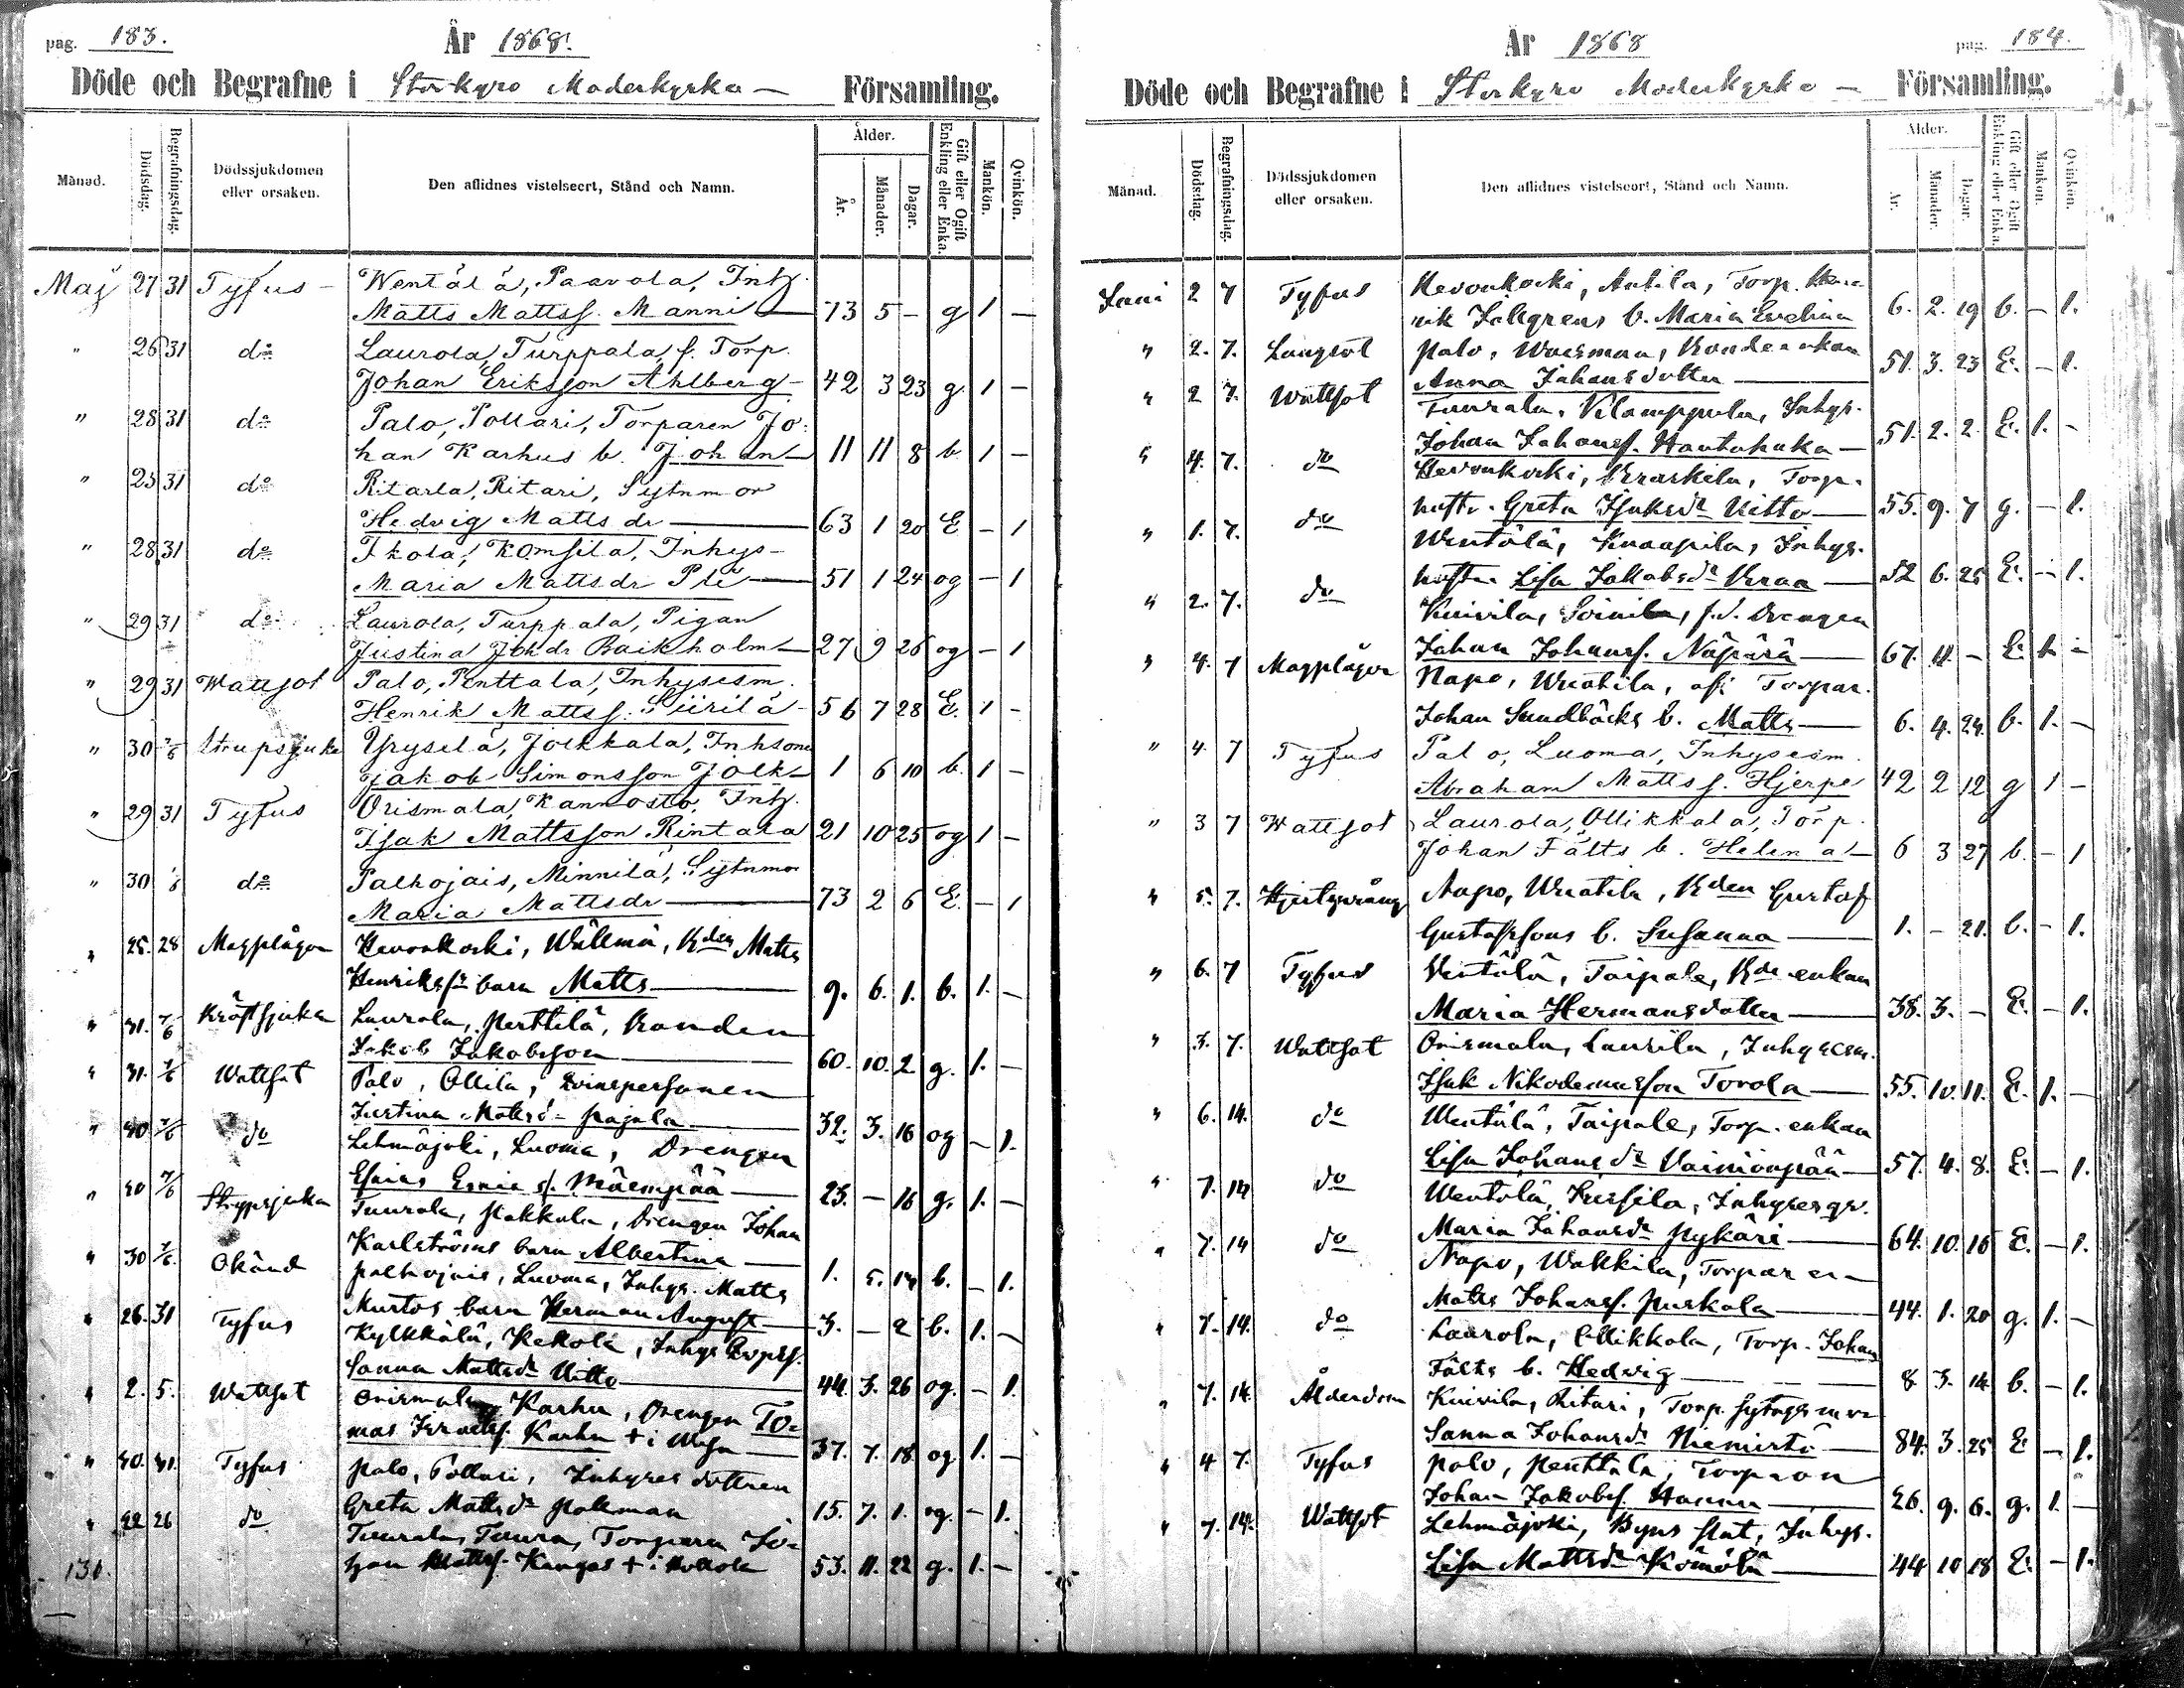 pag. 183.
År 1868.
Döde och Begrafne i Storkyro Moderkyrka — Församling.
Månad.
Dödsdag.
Begrafningsdag.
Dödssjukdomen eller orsaken.
Den aflidnes vistelseort, Stånd och Namn.
Ålder.
År.
Månader.
Dagar.
Gift eller Ogift Enkling eller Enka.
Mankön.
Qvinkön.
Maj 27 31 Tyfus — Wentälä, Paavola, Inh.
Matts Mattss. Manni — 73 5 — g 1 —
" 26 31 do Laurola, Turppala, f. Torp.
Johan Eriksson Ahlberg — 42 3 23 g. 1 —
" 28 31 do Palo, Pollari, Torparen Jo-
han Karhus b. Johan — 11 11 8 b. 1 —
" 25 31 do Ritarla, Ritari, Sytnmor
Hedvig Matts dr — 63 1 20 E — 1
" 28 31 do Ikola, Komsila, Inhys-
Maria Mattsdr Pli — 51 1 24 og — 1
" 29 31 do Laurola, Turppala, Pigan
Justina Joh dr Backholm — 27 9 26 og — 1
" 29 31 Wattsot Palo, Penttala, Inhysesm.
Henrik Mattss. Siirilä — 56 7 28 E. 1 —
" 30 7/6 Strupsjuka Yryselä, Jolkkala, Inhsone
Jakob Simonsson Jolk — 1 6 10 b. 1 —
" 29 31 Tyfus Orismala, Kannosto, Inh.
Isak Mattsson Rintala 21 10 25 og 1 —
" 30 do Palhojais, Minnilä, Sytnmor
Maria Mattsdr — 73 2 6 E. — 1
" 25. 28 Magplågor Hevonkoski, Wällmä, Bden Matts
Henrikss barn Matts — 9. 6. 1. b. 1. —
" 31. 7/6 Kräftsjuka Laurola, Perttilä, Bonden
Jakob Jakobsson — 60. 10. 2 g. 1. —
" 31. 7/6 Wattsot Palo, Ollila, Qvinspersonen
Justina Mattsd Pajula — 32. 3. 16 og — 1.
" 30 7/6 do Lehmäjoki, Luoma, Drengen
Esaias Esaias s. Mäempää — 23. — 16 g. 1. —
" 30 7/6 Strypsjuka Tuurala, Pakkala, Drengen Johan
Karlströms barn Albertina — 1. 5. 14 b. — 1.
" 30 7/6 Okänd Palhojais, Luoma, Inhys. Matts
Murtos barn Herman August — 3. — 2 b. 1. —
" 26. 31 Tyfus Kylkkälä, Kekola, Inhys Qvpers.
Sanna Mattsdr Uitto — 44. 3. 26 og. — 1.
" 2. 5. Wattsot Orismala, Karhu, Drengen To-
mas Israelss. Karhu † i Wasa 37. 7. 18. og 1. —
" 30. 31. Tyfus Palo, Pollari, Inhyses dottren
Greta Mattsdr Palkman 15. 7. 1. og. — 1.
" 22 26 do Tuurala, Tuura, Torparen Jo-
han Mattss. Kangas † i 53. 11. 22 g. 1. —
131.
År 1868
pag. 184.
Döde och Begrafne i Storkyro Moderkyrka — Församling.
Månad.
Dödsdag.
Begrafningsdag.
Dödssjukdomen eller orsaken.
Den aflidnes vistelseort, Stånd och Namn.
Ålder.
År.
Månader.
Dagar.
Gift eller Ogift Enkling eller Enka.
Mankön.
Qvinkön.
Juni 2 7 Tyfus Hevonkoski, Antila, Torp. Hen-
rik Jällgrens b. Maria Evelina 6. 2. 19 b. — 1.
" 2. 7. Lungsot Palo, Wuorimaa, Bondeenkan
Anna Johansdotter — 51. 3. 23 E. — 1.
" 2 7. Wattsot Tuurala, Kilamppula, Inhys.
Johan Johanss. Hautakuka — 51. 2. 2. E. 1. —
" 4. 7. do Hevonkoski, Kraaskila, Torp.
hustr. Greta Isaksdr Uitto — 55. 9. 7 g. — 1.
" 1. 7. do Wentälä, Knaapila, Inhys.
hustr. Lisa Jakobsdr Kraa — 52 6. 25 E. — 1.
" 2. 7. do Knivila, Soinila, f.d. Drengen
Johan Johanss. Näpärä — 67. 11. — E. 1. —
" 4. 7 Magplågor Napo, Wuotila, afs Torpar.
Johan Sundbäcks b. Matts — 6. 4. 24. b. 1. —
" 4. 7 Tyfus Palo, Luoma, Inhysesm.
Abraham Mattss. Hjerpe 42 2 12 g 1 —
" 3 7 Wattsot Laurola, Ollikkala, Torp.
Johan Fälts b. Helena — 6 3 27 b. — 1
" 5. 7. Hjertsprång Napo, Wuotila, Bden Gustaf
Gustafssons b. Susanna — 1. — 21. b. — 1.
" 6. 7 Tyfus Wentälä, Taipale, Bde enkan
Maria Hermansdotter — 38. 3. — E. — 1.
" 3. 7. Wattsot Orismala, Laurila, Inhysesm.
Isak Nikodemusson Torola — 55. 10. 11. E. 1. —
" 6. 14. do Wentälä, Taipale, Torp. enkan
Lisa Johansdr Vainionpää — 57. 4. 8. E. — 1.
" 7. 14 do Wentälä, Kussila, Inhysesqv.
Maria Johansdr Pykäri — 64. 10. 16 E. — 1.
" 7. 14 do Napo, Wakkila, Torparen
Matts Johanss. Purkola — 44. 1. 20 g. 1. —
" 7. 14. do Laurola, Ollikkala, Torp. Johan
Fälts b. Hedvig — 8 3. 14 b. — 1.
" 7. 14. Ålderdom Knivila, Ritari, Torp. Sytnings mor
Sanna Johansdr Niemistö — 84. 3. 25 E — 1.
" 4 7. Tyfus Palo, Penttala, Torparen
Johan Jakobss. Hannu — 26. 9. 6. g. 1. —
" 7. 14. Wattsot Lehmäjoki, Byns fatt, Inhys.
Lisa Mattsdr Kömölä — 44 10 18 E. — 1.